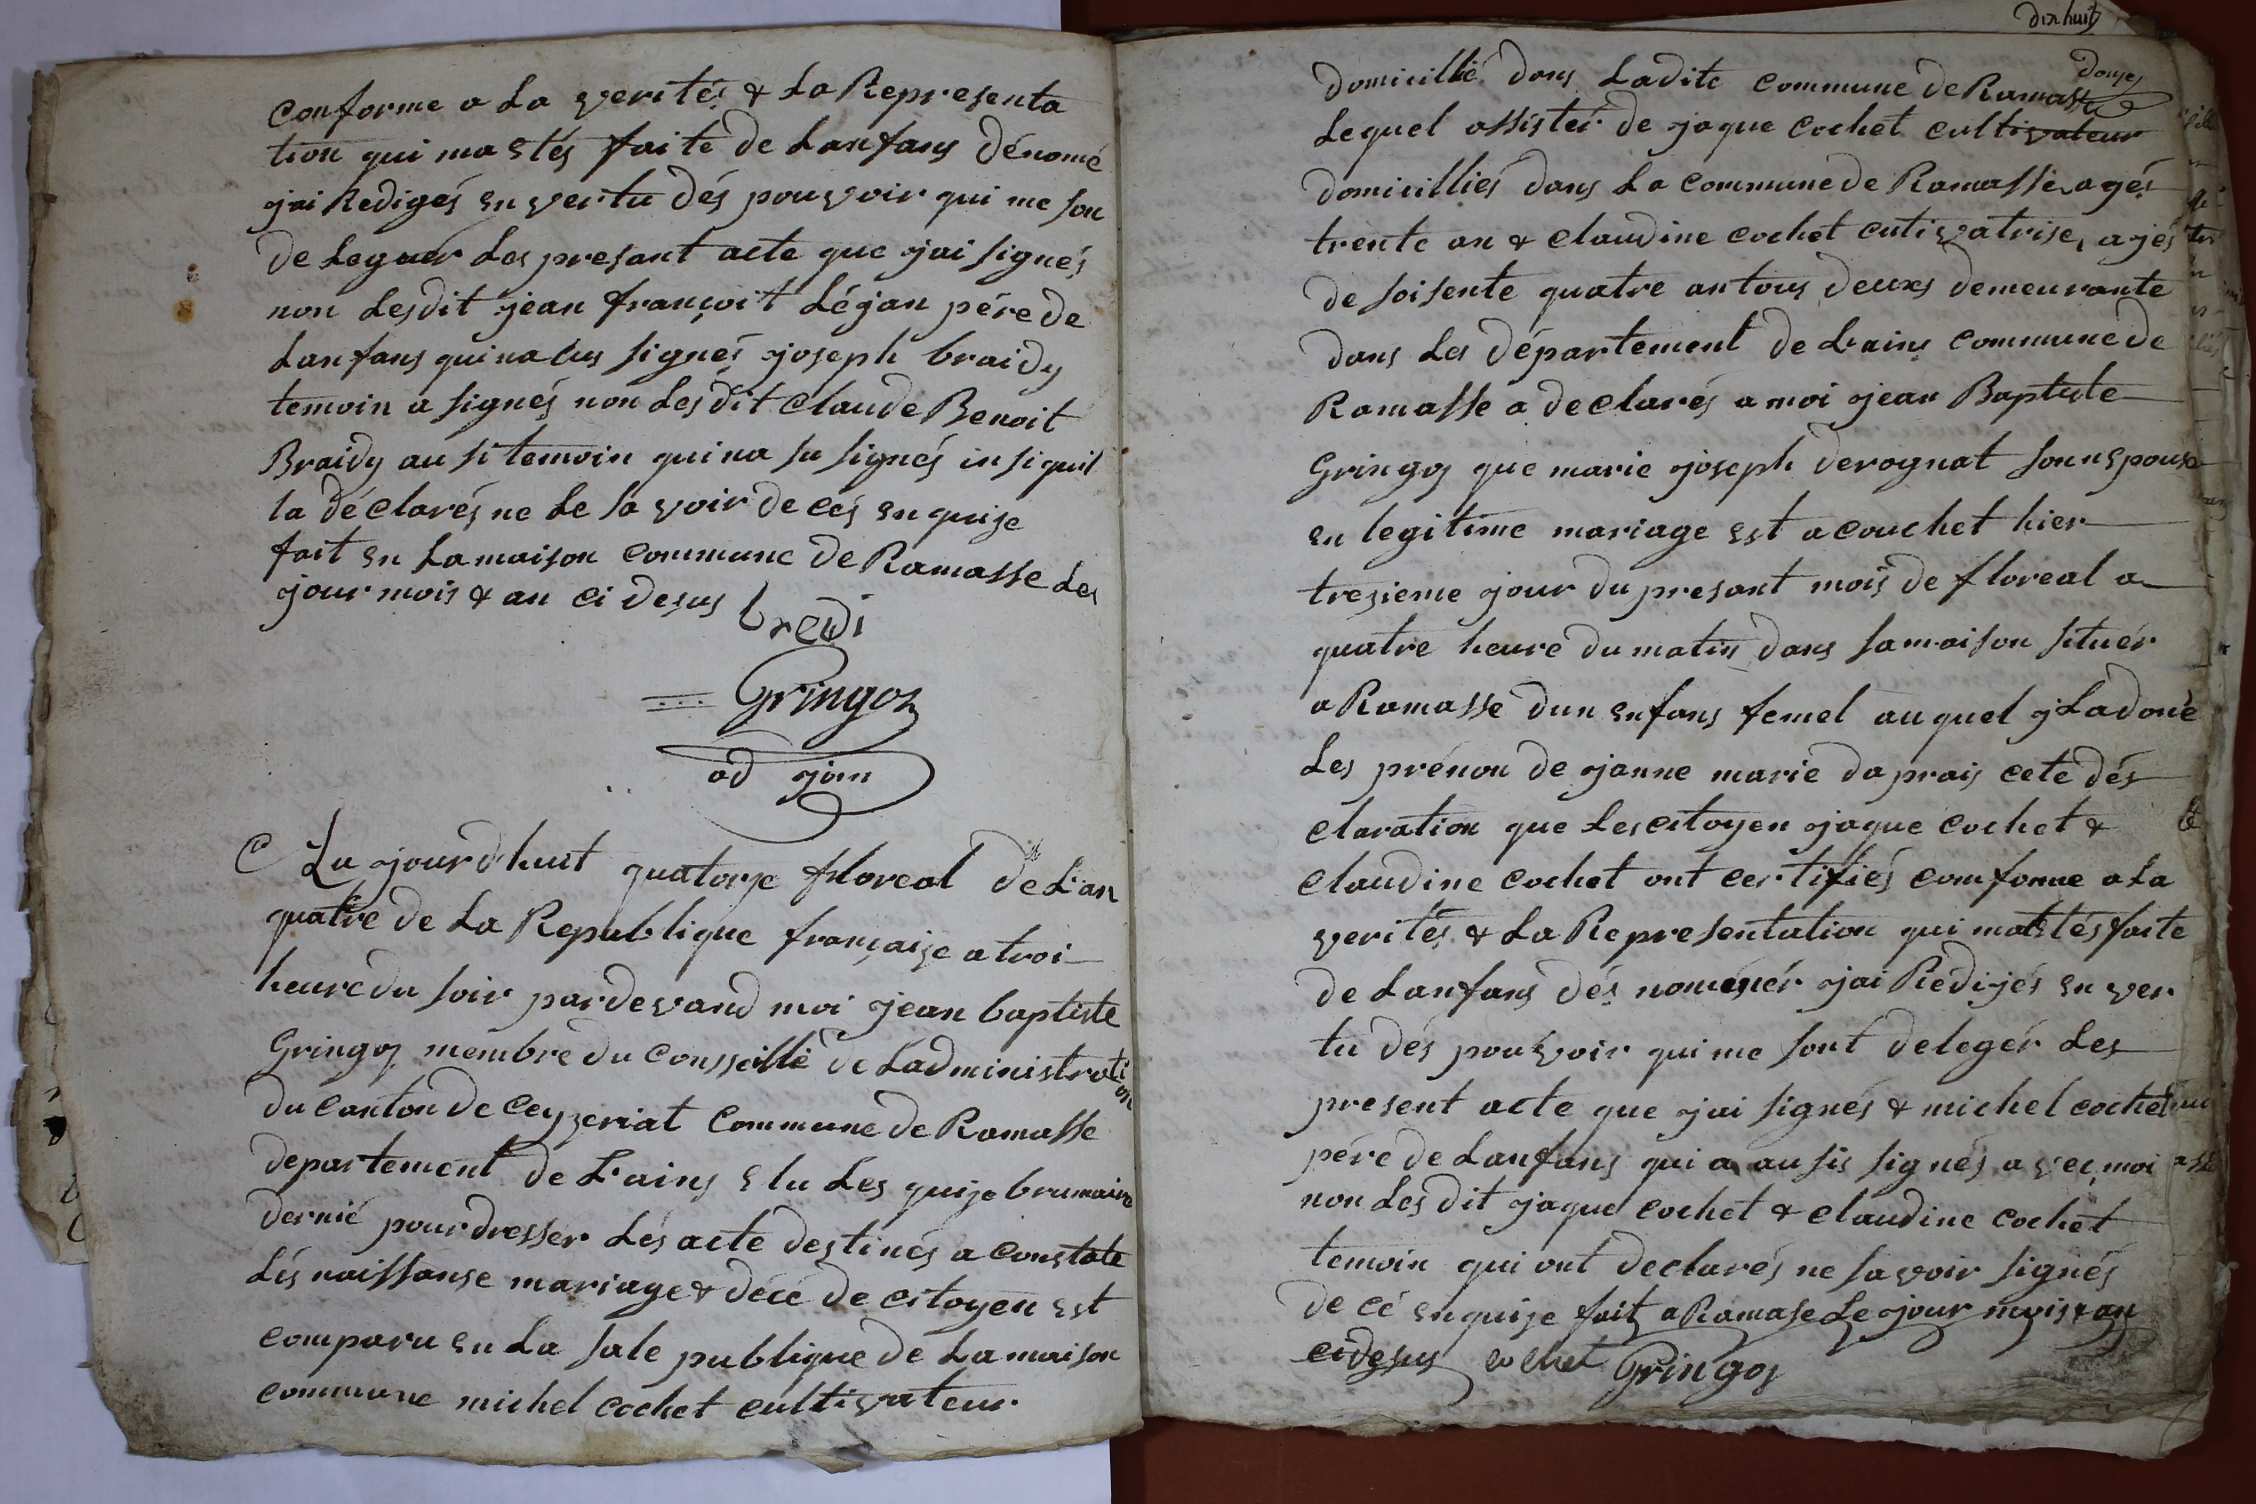 conforme a La verités & La Representa
tion qui ma etés faite de Lanfans dénomé
jai Redigés en vertu dés pouvoir qui me son
de Leguer Les presant acte que jai signés
non Lesdit jean françoit Léjan pére de
Lanfans qui na sus signés joseph braidy
temoin a signés non Lesdit Claude Benoit
Braidy au si temoin qui na su signés insi quil
la déclarés ne Le sa voir de cés enquize
fait en La maison commune de Ramasse Les
jour mois & an ci desus bredi
Gringoz
ad join
C Lu jourdhuit quatorze floreal de L'an
quatre de La Republique françaize a troi
heure du soir pardevand moi jean baptiste
Gringoz membre du Consseillé de Ladministration
du Canton de Ceyzeriat Commune de Ramasse
departement de L'ains elu Les quize brumaire
dernié pour dresser Lés acte destinés a constate
Lés naissanse mariage & décé de citoyen est
comparu en La sale publique de La maison
commune michel cochet cultivateur
dix huit
douze
domicillié dans Ladite commune de Ramasse
Lequel assister de jaque cochet cultivateur
domicilliés dans La commune de Ramasse agés
trente an & claudine cochet cutivatrise, ajés
de soisente quatre an tous deuxs demeurante
dans Les département de L'ains commune de
Ramasse a declarés a moi jean Baptiste
Gringoz que marie joseph derognat son epouse
en legitime mariage est a couchet hier
trezieme jour du presant mois de floreal a
quatre heure du matin dans sa maison situér
a Ramasse dun enfans femel au quel jL a doné
Les prénon de janne marie da prais cete dés
claration que Les citoyen jaque cochet &
claudine cochet ont certifiés comforme a La
verités & La Representation qui ma etés faite
de Lanfans dés nomenér jai Redijés en ver
tu dés pouvoir qui me sont deleger Les
present acte que jai signés & michel cochet
pére de Lanfans qui a ausis signés avec moi
non Les dit jaque cochet & claudine cochet
temoin qui ont declarés ne savoir signés
de cé enquize fait a Ramase Le jour mois & an
ci desus cochet Gringoz